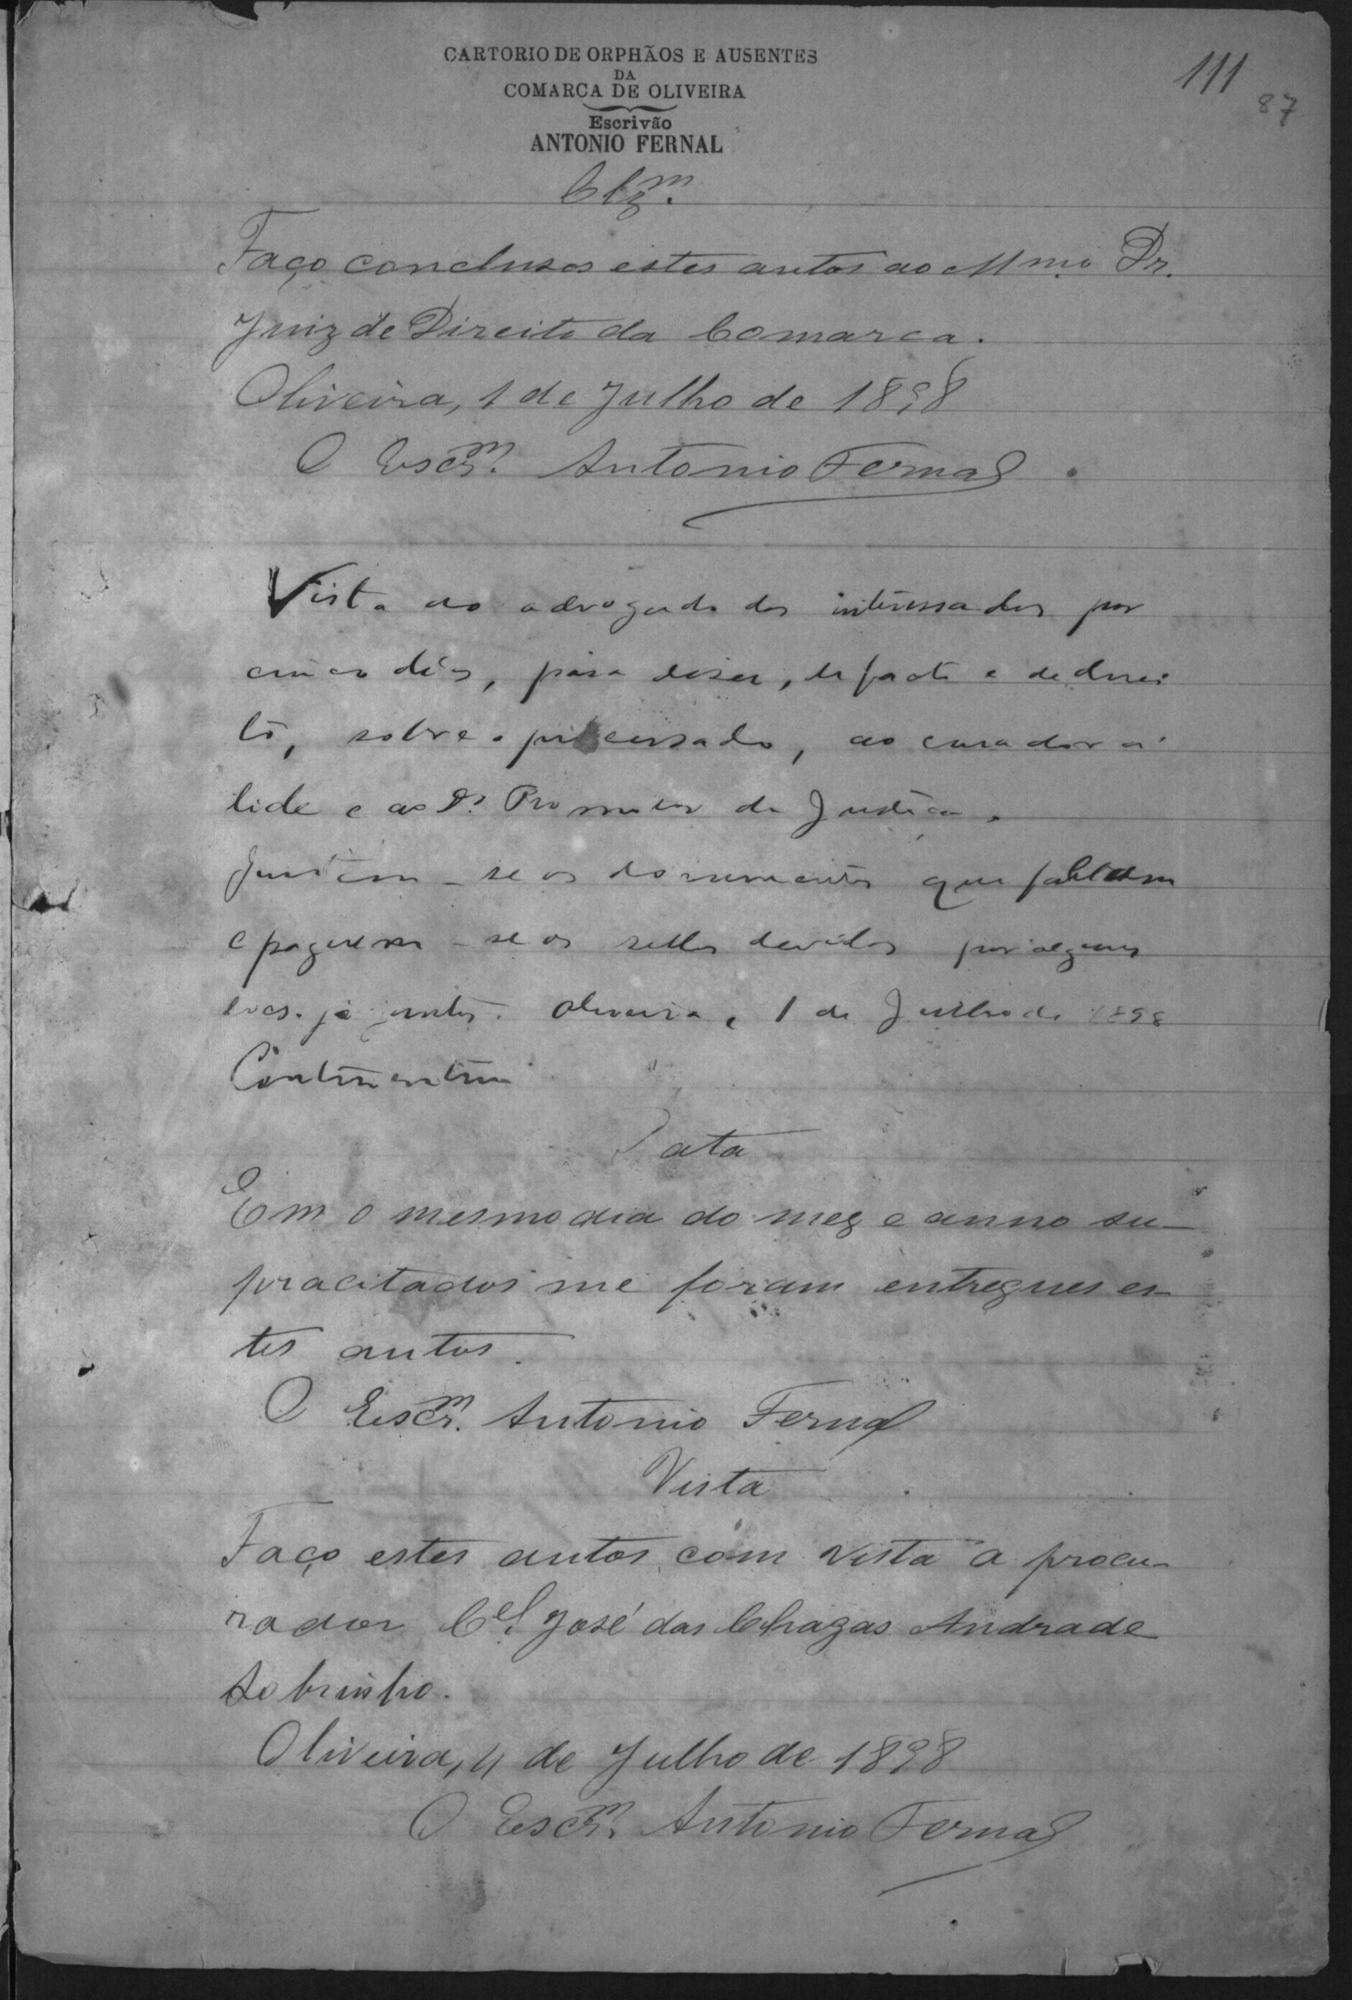 CARTORIO DE ORPHÃOS E AUSENTES
DA
COMARCA DE OLIVEIRA
Escrivão
ANTONIO FERNAL
111
87
Clzm.
Faço conclusos estes autos ao M mo Dr.
Juiz de Direito da Comarca.
Oliveira, 1 de Julho de 1898
O Escrm. Antonio Fernal
Vista ao advogado dos interessados por
cinco dias, para dizer, de facto e de direi
to, sobre o processado, ao curador a'
lide e ao Dr. Promotor da Justiça.
Juntem-se os documentos que faltam
e paguem-se os sellos devidos por alguns
já juntos. Oliveira, 1 de Julho de 1898
Continentino
Data
Em o mesmo dia do mez e anno su-
pracitados me foram entregues es-
tes autos.
O Escrm. Antonio Fernal
Vista
Faço estes autos com vista a procu-
rador Cel. José das Chagas Andrade
Sobrinho.
Oliveira, 4 de Julho de 1898
O Escrm. Antonio Fernal